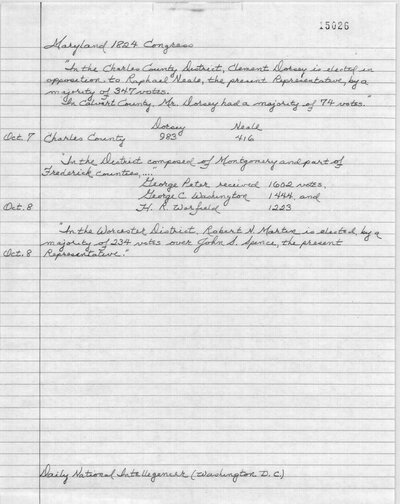 15026
Maryland 1824 Congress
"In the Charles County District, Clement Dorsey is elected in
opposition to Raphael Neale, the present Representative, by a
majority of 347 votes.
In Calvert County, Mr. Dorsey had a majority of 74 votes."
Dorsey Neale
Oct. 7 Charles County 983 416
"In the District composed of Montgomery and part of
Frederick counties,....
George Peter received 1602 votes,
George C. Washington 1444 and
Oct. 8 H. R. Warfield 1223
"In the Worcester District, Robert N. Martin is elected, by a
majority of 234 votes over John S. Spence, the present
Oct. 8 Representative."
Daily National Intelligencer (Washington D.C)